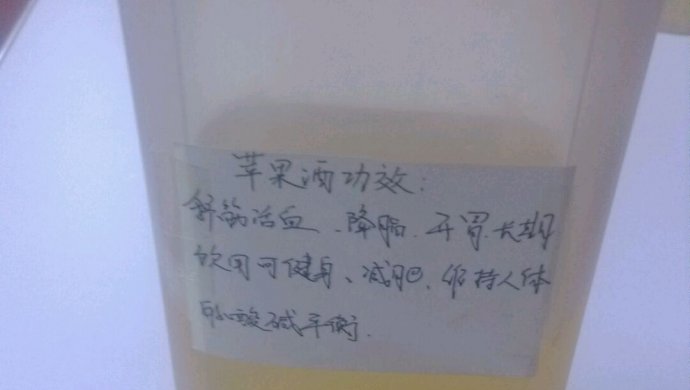 苹果酒功效：
舒筋活血、降脂、开胃、长期
饮用可健身、减肥、维持人体
酸碱平衡.